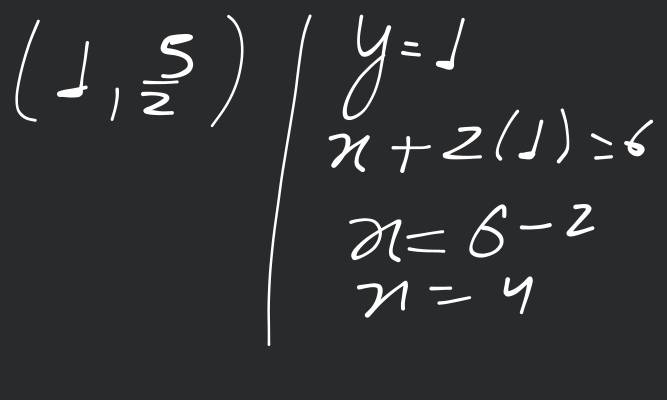 (1, 5/2)
y = 1
x + 2(1) = 6
x = 6 - 2
x = 4